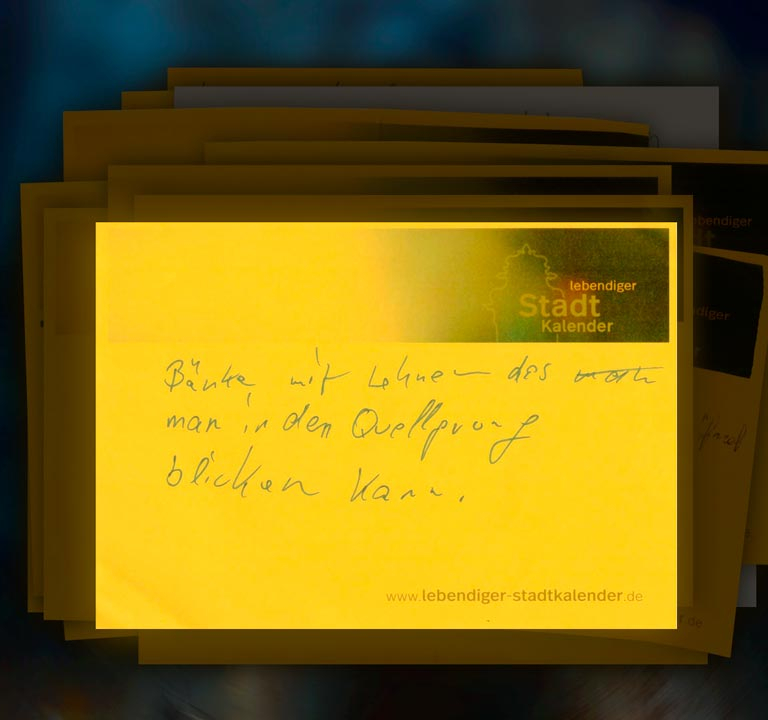 lebendiger
Stadt
Kalender
Bänke mit Lehnen das
man in den Quellprung
blicken kann.
www.lebendiger-stadtkalender.de
lebendiger
.de